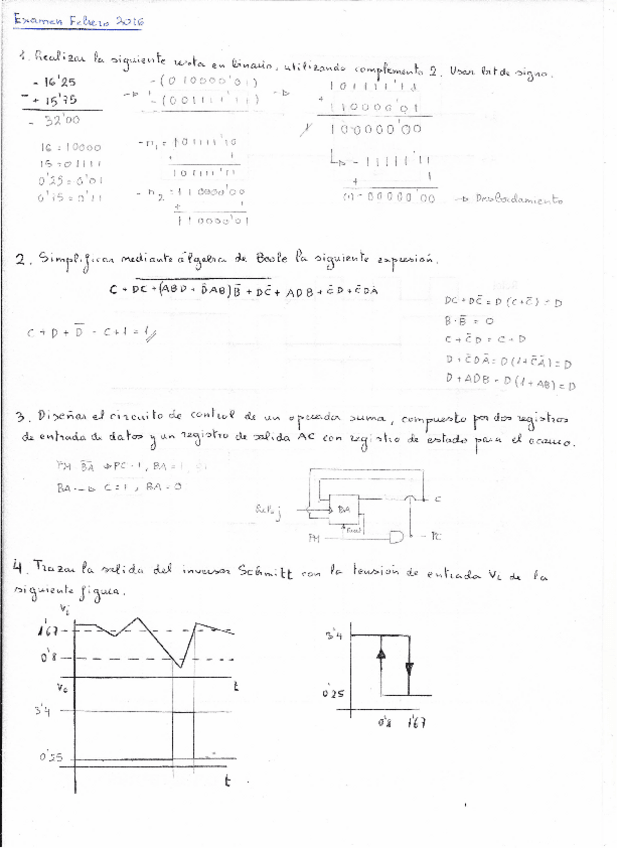 Examen Febrero 2016
1. Realizar la siguiente resta en binario, utilizando complemento 2. Usar bit de signo.
- 16'25
- + 15'75
- 32'00
- (010000'01)
- (001111'11)
101111'11
+ 110000'01
100000'00
16 = 10000
15 = 01111
0'25 = 0'01
0'75 = 0'11
- n₁ = 101111'10
+ 1
101111'11
- n₂ = 110000'00
+ 1
110000'01
- 11111'11
+ 1
(1) - 00000'00 → Desbordamiento
2. Simplificar mediante álgebra de Boole la siguiente expresión.
C + DC + (ABD + D̄AB)B̄ + DC̄ + ADB + C̄D + C̄DĀ
C + D + D̄ = C + 1 = 1
DC + DC̄ = D(C + C̄) = D
B · B̄ = 0
C + C̄D = C + D
D + C̄DĀ = D(1 + C̄Ā) = D
D + ADB = D(1 + AB) = D
3. Diseñar el circuito de control de un operador suma, compuesto por dos registros
de entrada de datos y un registro de salida AC con registro de estado para el acarreo.
PM B̄Ā → PC = 1, BA = 1
BA → C = 1, BA = 0
Reloj
BA
Reset
C
PM
PC
4. Trazar la salida del inversor Schmitt con la tensión de entrada Vi de la
siguiente figura.
Vi
1'67
0'8
t
Vo
3'4
0'25
t
3'4
0'25
0'8 1'67